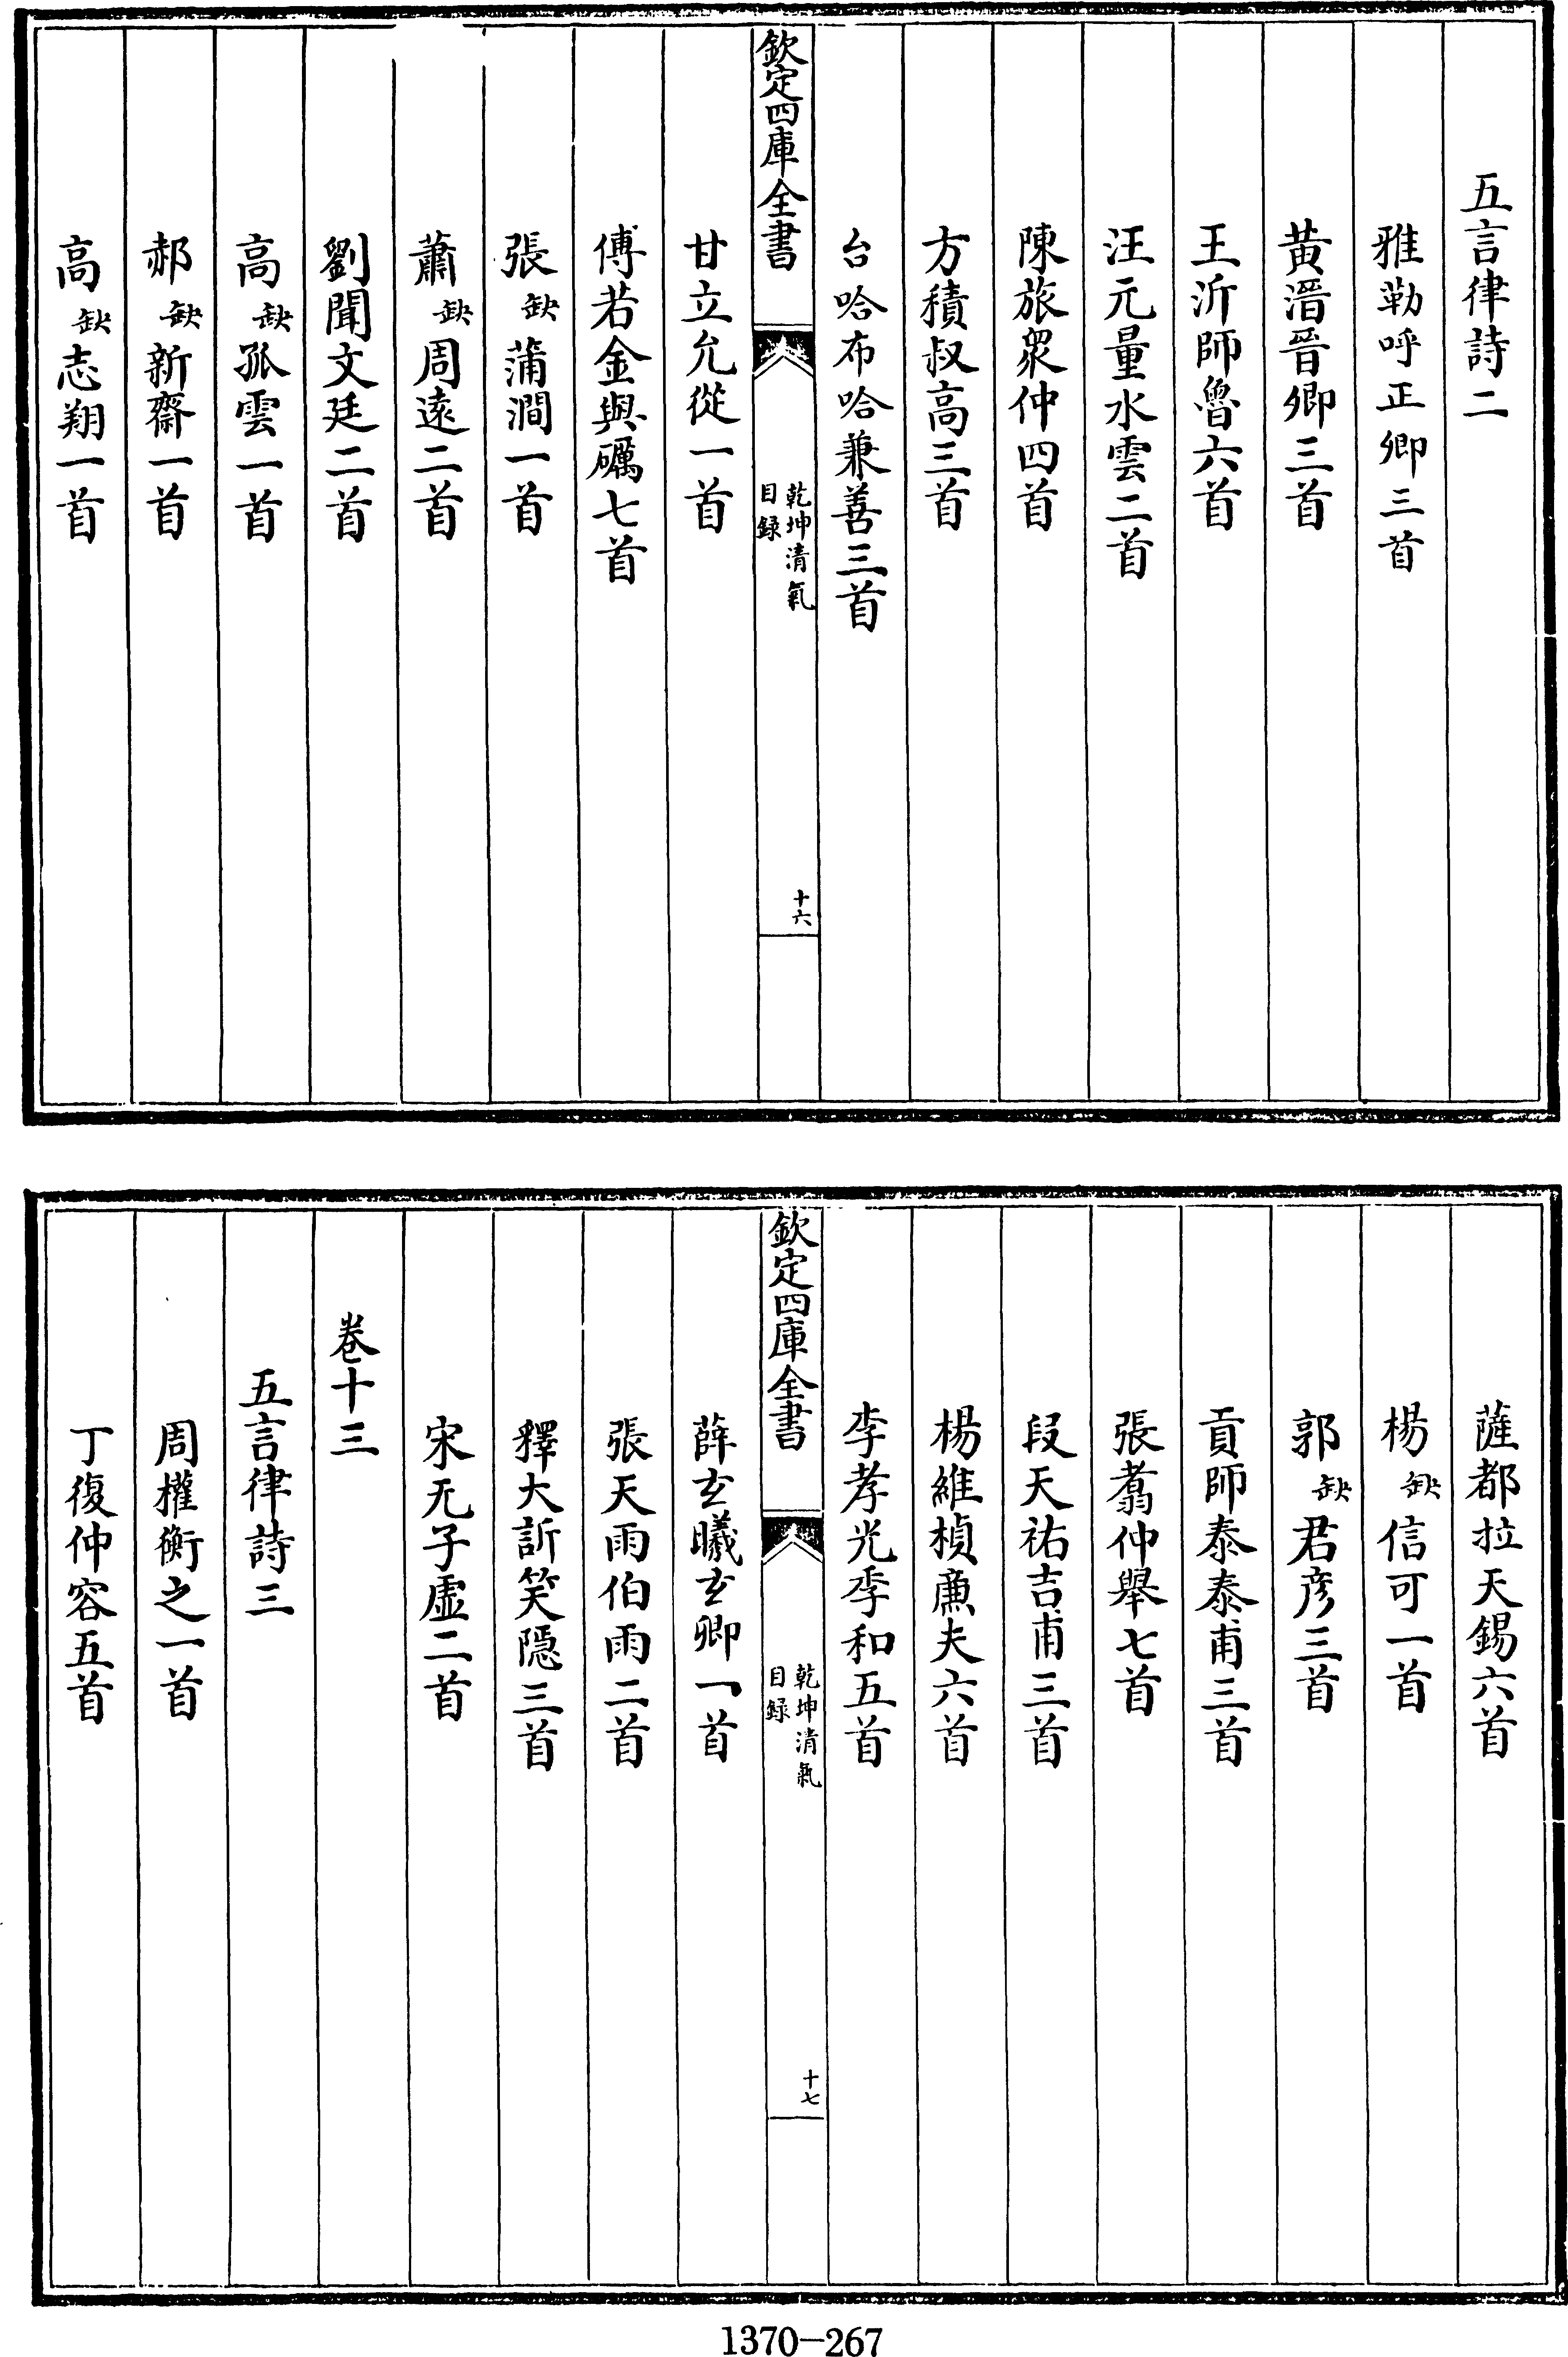 五言律詩二
雅勒呼正卿三首
黄溍晉卿三首
王沂師魯六首
汪元量水雲二首
陳旅衆仲四首
方積叔高三首
台哈布哈兼善三首
欽定四庫全書
乾坤清氣
目録
十六
甘立允從一首
傅若金與礪七首
張缺蒲澗一首
蕭缺周遠二首
劉聞文廷二首
高缺孤雲一首
郝缺新齋一首
高缺志翔一首
薩都拉天錫六首
楊缺信可一首
郭缺君彦三首
貢師泰泰甫三首
張翥仲舉七首
段天祐吉甫三首
楊維楨廉夫六首
李孝光季和五首
欽定四庫全書
乾坤清氣
目録
十七
薛玄曦玄卿一首
張天雨伯雨二首
釋大訢笑隱三首
宋无子虚二首
卷十三
五言律詩三
周權衡之一首
丁復仲容五首
1370-267